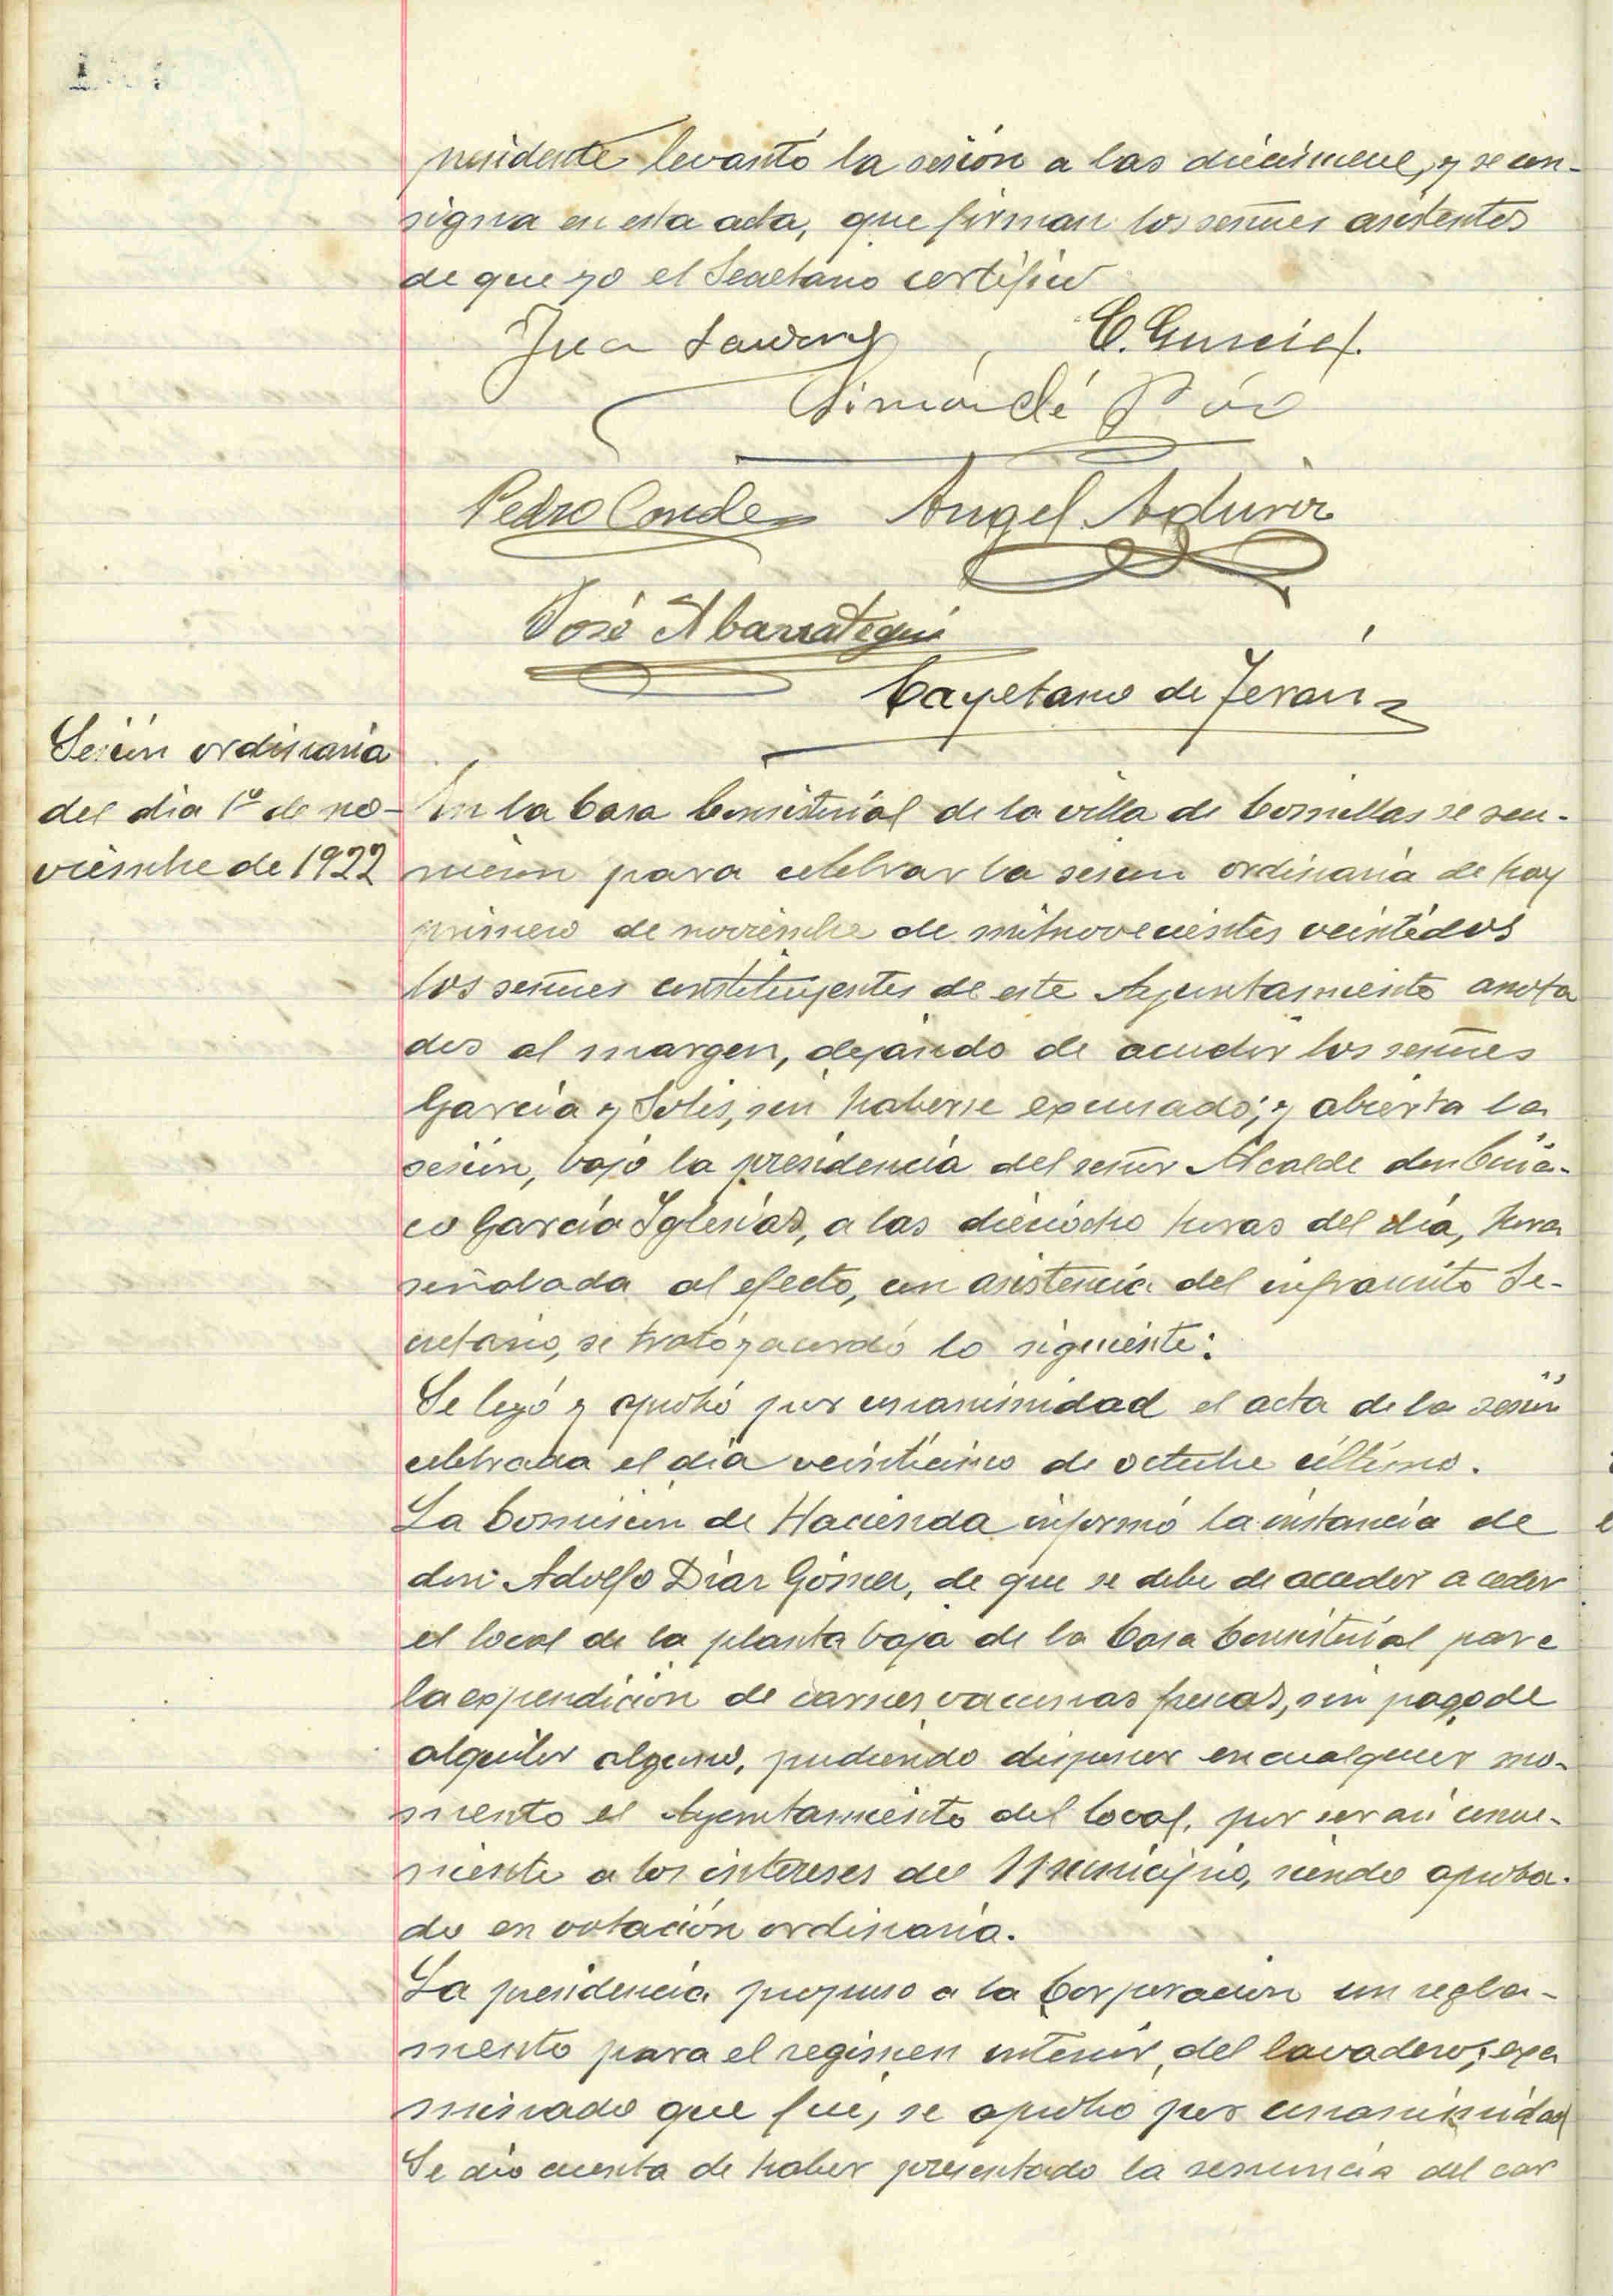 presidente levantó la sesión a las diecinueve, y se con-
signa en esta acta, que firman los señores asistentes
de que yo el Secretario certifico
Juan C. García
Simón de
Pedro Conde Angel
José Abarrategui
Cayetano de Terán
Sesión ordinaria
del dia 1º de no-
viembre de 1922
En la Casa Consistorial de la villa de Comillas se reu-
nieron para celebrar la sesion ordinaria de hoy
primero de noviembre de mil novecientos veintidos
los señores constituyentes de este Ayuntamiento anota
dos al margen, dejando de acudir los señores
García y Solis, sin haberse excusado; y abierta la
sesión, bajo la presidencia del señor Alcalde don Ciria-
co García Iglesias, a las dieciocho horas del día, hora
señalada al efecto, con asistencia del infrascrito Se-
cretario, se trató y acordó lo siguiente:
Se leyó y aprobó por unanimidad el acta de la sesión
celebrada el día veinticinco de octubre último.
La Comisión de Hacienda informó la instancia de
don Adolfo Díaz Gómez, de que se debe de acceder a ceder
el local de la planta baja de la Casa Consistorial para
la expendición de carnes vacunas frescas, sin pago de
alquiler alguno, pudiendo disponer en cualquier mo-
mento el Ayuntamiento del local, por ser asi conve-
niente a los intereses del Municipio, siendo aproba-
do en votación ordinaria.
La presidencia propuso a la Corporación un regla-
mento para el regimen interior, del lavadero; exa
minado que fue, se aprobó por unanimidad
Se dio cuenta de haber presentado la renuncia del car